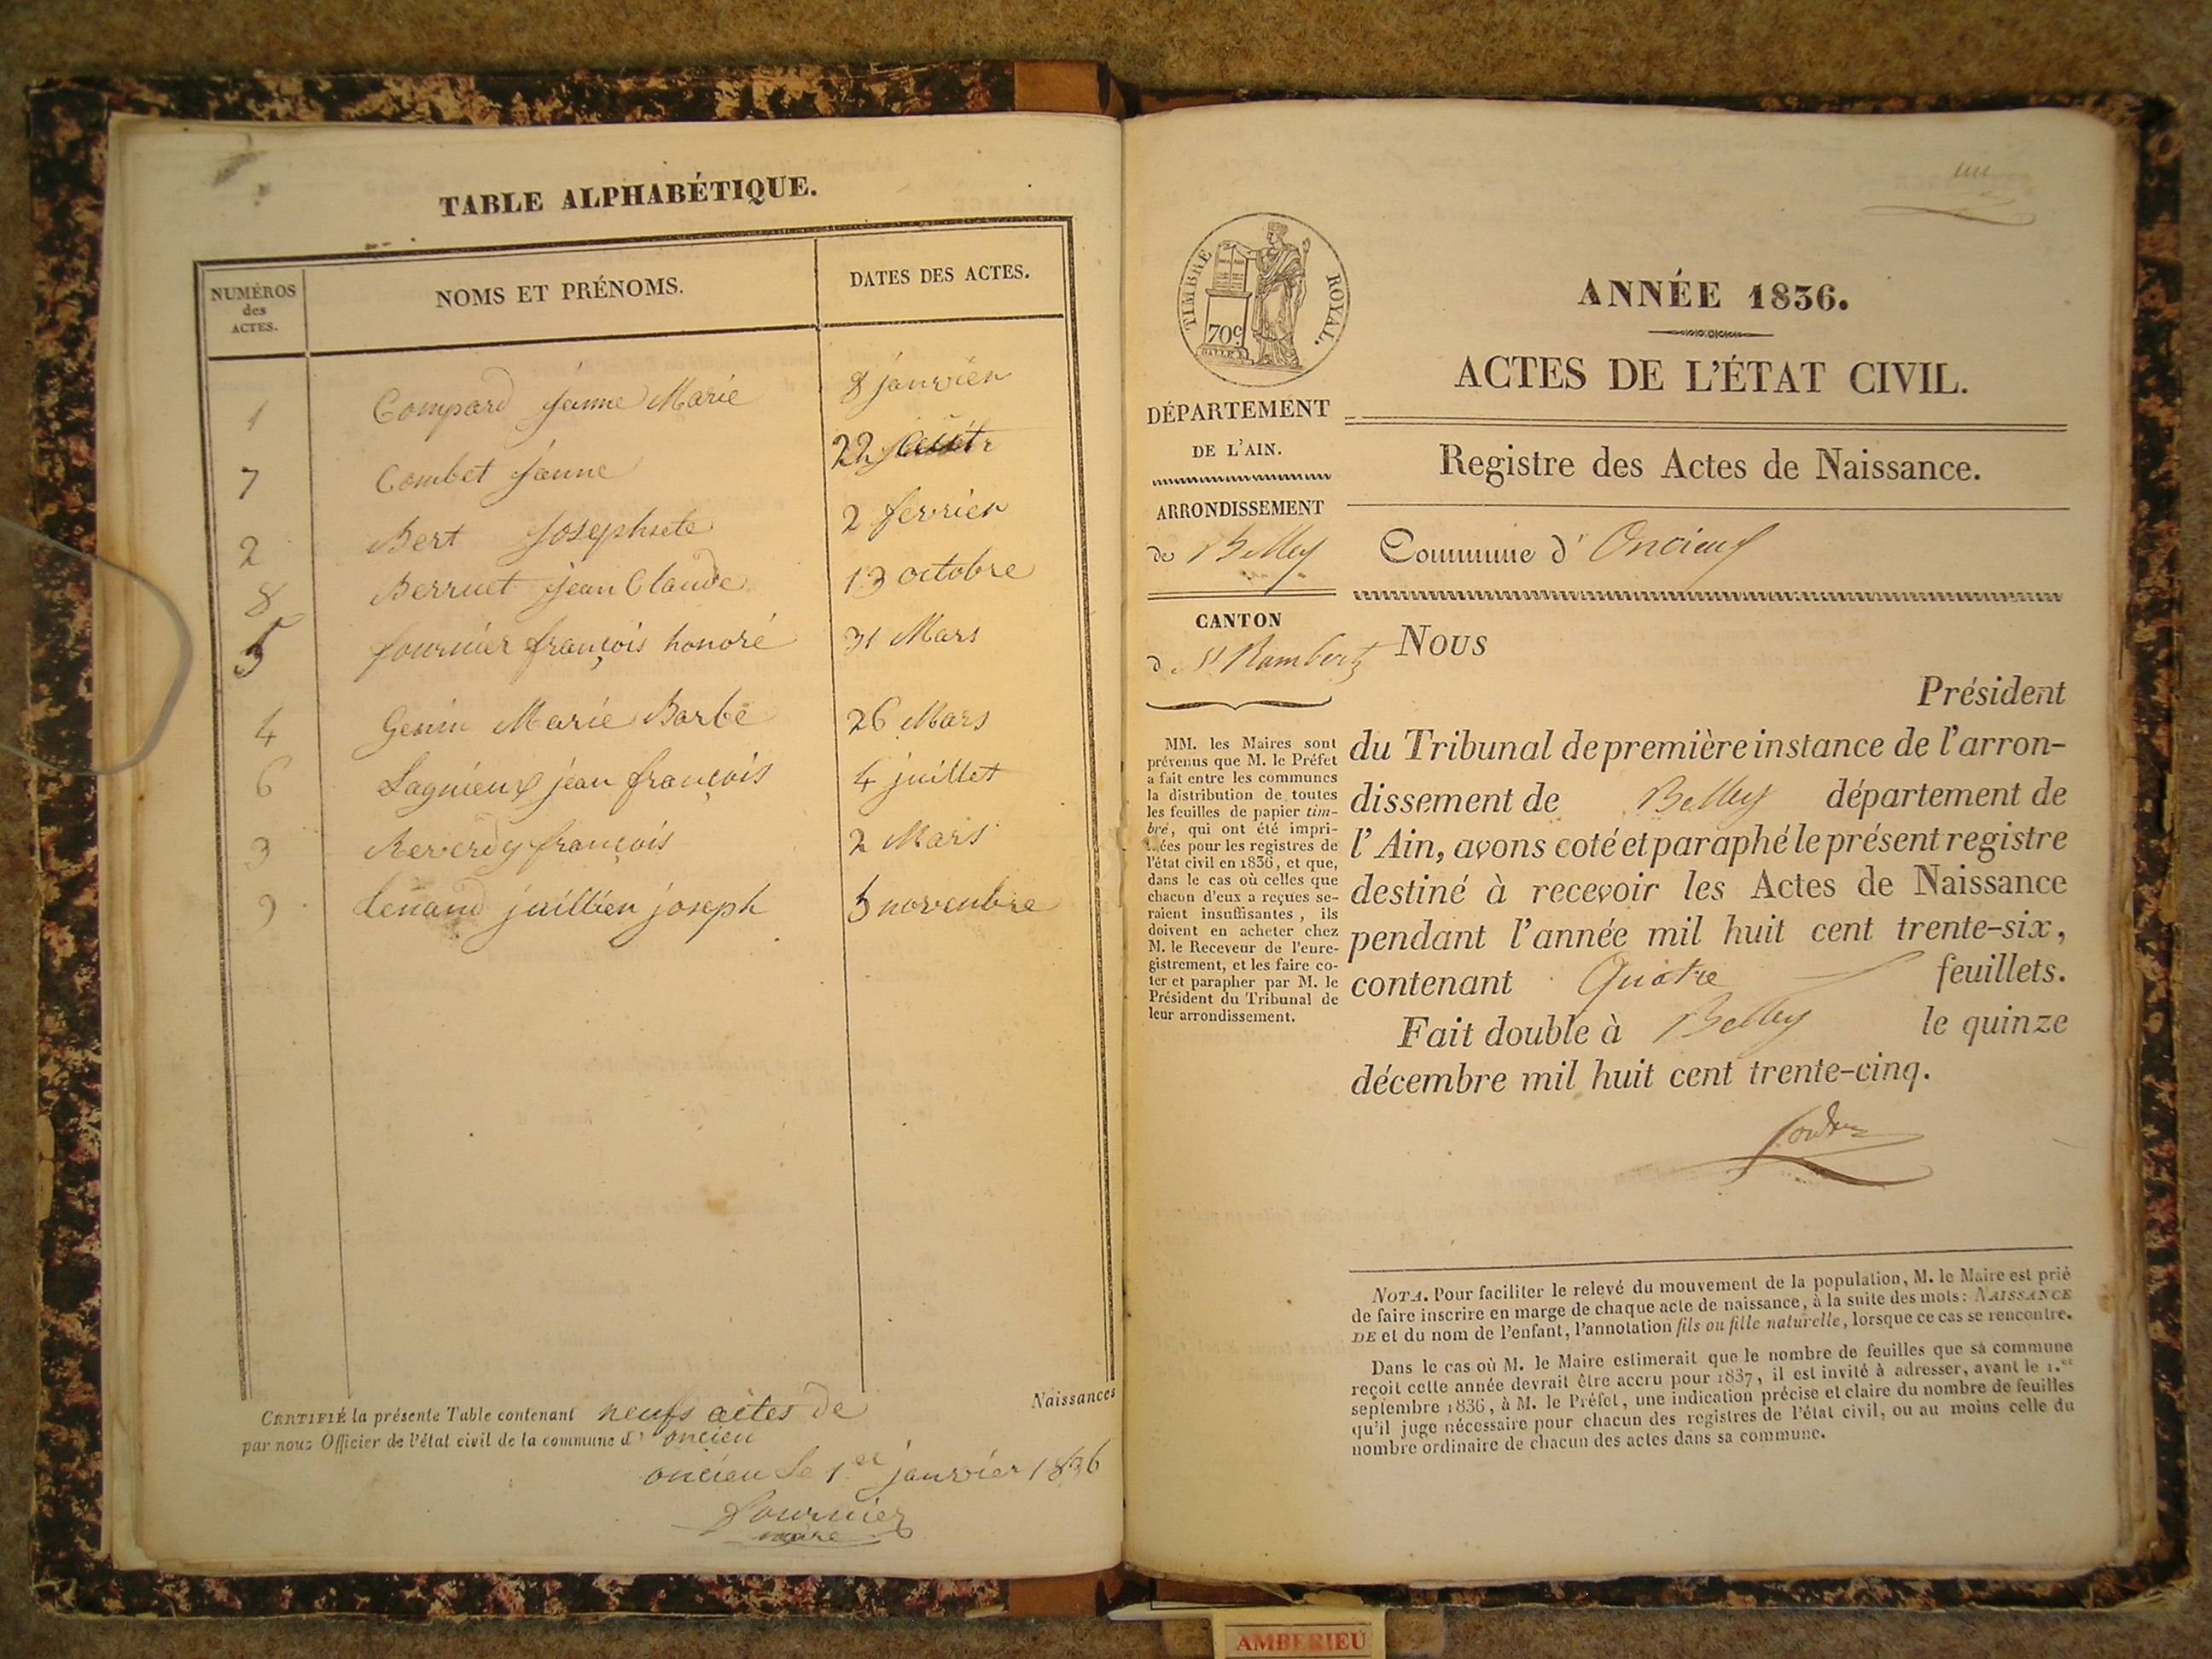 TABLE ALPHABÉTIQUE.
NUMÉROS
des
ACTES.
NOMS ET PRÉNOMS.
DATES DES ACTES.
1 Compard jeanne Marie 8 janvier
7 Combet jeanne 22 août
2 Bert Josephete 2 fevrier
8 Berruet jean Claude 13 octobre
5 fournier françois honoré 31 Mars
4 Genin Marie Barbe 26 Mars
6 Lagnieux jean françois 4 juillet
3 Reverdy françois 2 Mars
9 tenand juillien joseph 5 novenbre
Naissances
CERTIFIÉ la présente Table contenant neufs actes de
par nous Officier de l'état civil de la commune d' oncieu
oncieu le 1er janvier 1836
Fournier
maire
un
TIMBRE ROYAL.
70c
ANNÉE 1836.
ACTES DE L'ÉTAT CIVIL.
Registre des Actes de Naissance.
Commune d' Oncieux
DÉPARTEMENT
DE L'AIN.
ARRONDISSEMENT
de Belley
CANTON
de St Rambert
MM. les Maires sont
prévenus que M. le Préfet
a fait entre les communes
la distribution de toutes
les feuilles de papier tim-
bré, qui ont été impri-
mées pour les registres de
l'état civil en 1836, et que,
dans le cas où celles que
chacun d'eux a reçues se-
raient insuffisantes, ils
doivent en acheter chez
M. le Receveur de l'enre-
gistrement, et les faire co-
ter et parapher par M. le
Président du Tribunal de
leur arrondissement.
Nous
Président
du Tribunal de première instance de l'arron-
dissement de Belley département de
l'Ain, avons coté et paraphé le présent registre
destiné à recevoir les Actes de Naissance
pendant l'année mil huit cent trente-six,
contenant Quatre feuillets.
Fait double à Belley le quinze
décembre mil huit cent trente-cinq.
NOTA. Pour faciliter le relevé du mouvement de la population, M. le Maire est prié
de faire inscrire en marge de chaque acte de naissance, à la suite des mots: NAISSANCE
DE et du nom de l'enfant, l'annotation fils ou fille naturelle, lorsque ce cas se rencontre.
Dans le cas où M. le Maire estimerait que le nombre de feuilles que sa commune
reçoit cette année devrait être accru pour 1837, il est invité à adresser, avant le 1.er
septembre 1836, à M. le Préfet, une indication précise et claire du nombre de feuilles
qu'il juge nécessaire pour chacun des registres de l'état civil, ou au moins celle du
nombre ordinaire de chacun des actes dans sa commune.
AMBERIEU